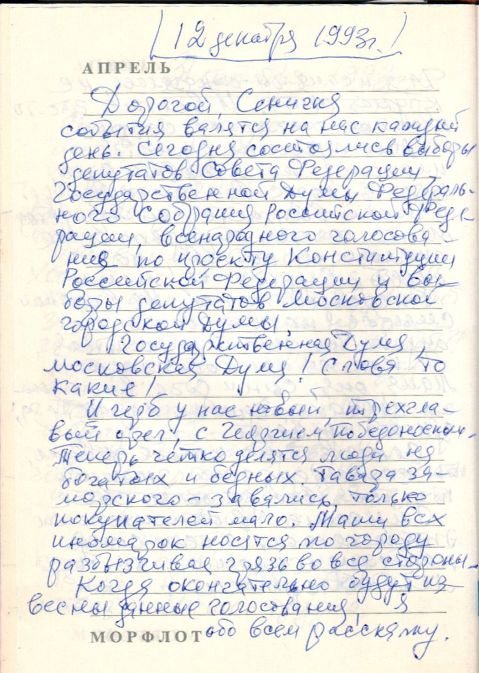 (12 декабря 1993г.)
АПРЕЛЬ
Дорогой, Сенички
события валятся на нас каждый
день. Сегодня состоялись выборы
депутатов Совета Федерации,
Государственной Думы Федераль-
ного Собрания Российской Феде-
рации, всенародного голосова-
ния по проекту Конституции
Российской Федерации и вы-
боры депутатов Московской
городской Думы.
Государственная Дума,
Московская Дума! Слова то
какие!
И герб у нас новый, трехгла-
вый орел, с Георгием победоносцем.
Теперь чётко делятся люди на
богатых и бедных. Товара за-
морского – завались, только
покупателей мало. Машин всех
иномарок носятся по городу
разбызгивая грязь во все стороны.
Когда окончательно будут из-
вестны данные голосования, я
обо всем расскажу.
МОРФЛОТ